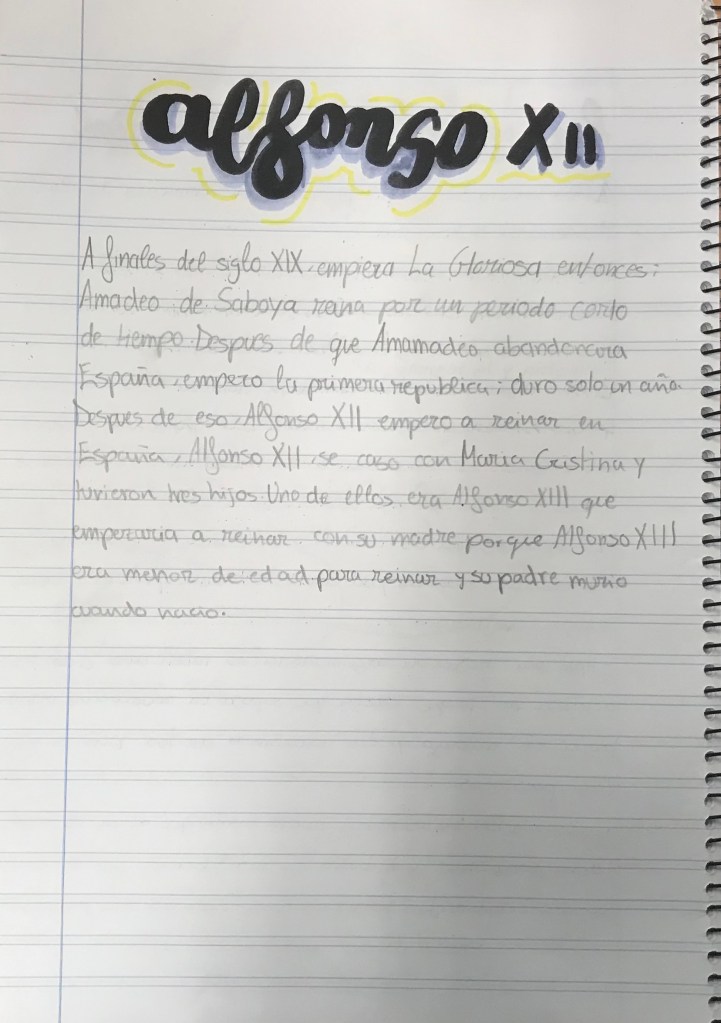 alfonso XII
A finales del siglo XIX, empieza La Gloriosa entonces;
Amadeo de Saboya reina por un periodo corto
de tiempo. Despues de que Amamadeo abandonara
España, empezo la primera republica; duro solo un año.
Despues de eso, Alfonso XII empezo a reinar en
España, Alfonso XII, se caso con Maria Cristina y
tuvieron tres hijos. Uno de ellos era Alfonso XIII que
empezaria a reinar con su madre porque Alfonso XIII
era menor de edad para reinar y su padre murio
cuando nacio.